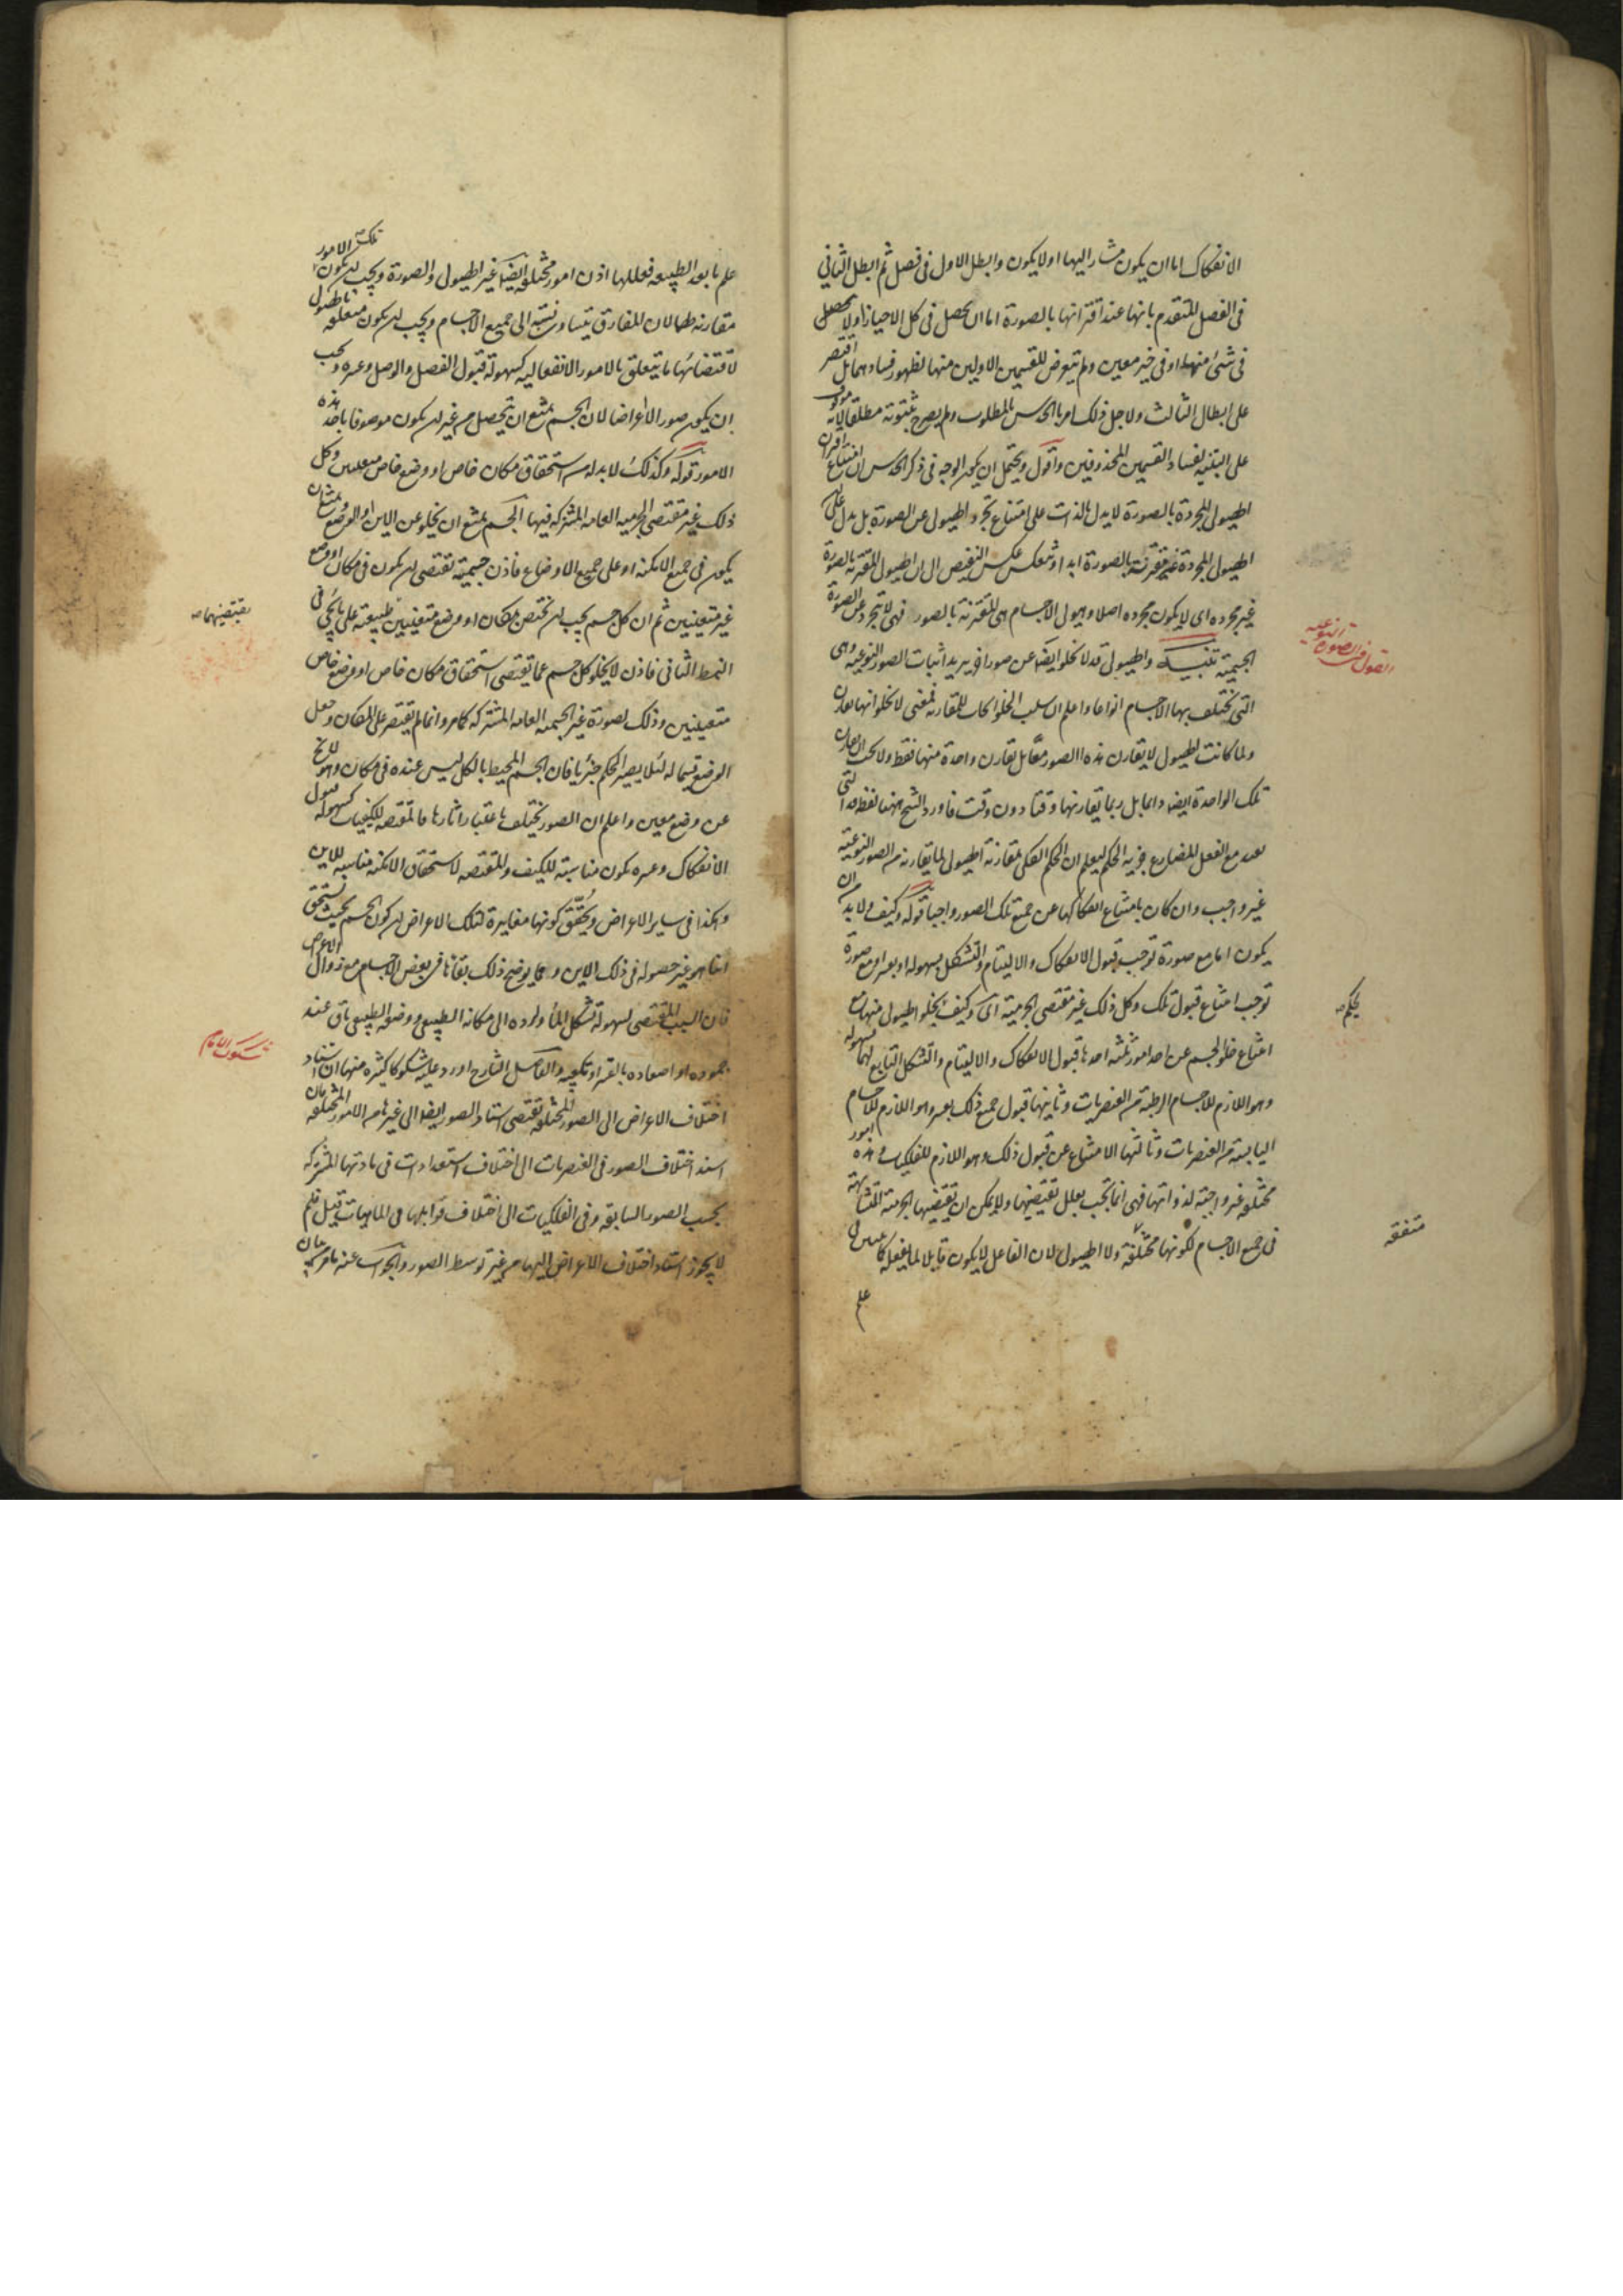 الانفكاك اما ان يكون مشارا اليها او لا يكون وابطل الاول فى فصل ثم ابطل الثانى
فى الفصل المتقدم بانها عند اقترانها بالصورة اما ان تحصل فى كل الاحياز او لا تحصل
فى شئ منها او فى حيز معين ولم يتعرض للقسمين الاولين منها لظهور فسادهما بل اقتصر
على ابطال الثالث ولاجل ذلك امر بالحدس بالمطلوب ولم يصرح بثبوته مطلقا لانه موقوف
على التنبيه لفساد القسمين المحذوفين واقول ويحتمل ان يكون الوجه فى ذكر الحدس ان امتناع اقتران
الهيولى المجردة بالصورة لا يدل بالذات على امتناع تجرد الهيولى عن الصورة بل يدل على ان
الهيولى المجردة غير مقترنة بالصورة ابدا وتنعكس عكس النقيض الى ان الهيولى المقترنة بالصورة
غير مجردة اى لا يكون مجردة اصلا وهيولى الاجسام هى المقترنة بالصور فهى لا تتجرد عن الصورة
الجسمية تنبيه والهيولى قد لا تخلو ايضا عن صور اخرى يريد اثبات الصور النوعية وهى
التى تختلف بها الاجسام انواعا واعلم ان سلب الخلو اثبات للمقارنة فمعنى لا تخلو انها تقارن
ولما كانت الهيولى لا تقارن هذه الصور معا بل تقارن واحدة منها فقط ولا يجب ان تقارن
تلك الواحدة ايضا دائما بل ربما تقارنها وقتا دون وقت فاورد الشيخ ههنا لفظة قد التى
تفيد مع الفعل المضارع جزئية الحكم ليعلم ان الحكم الكلى بمقارنة الهيولى لما تقارنه من الصور النوعية
غير واجب وان كان بامتناع انفكاكها عن جميع تلك الصور واجبا قوله وكيف ولا بد من ان
يكون اما مع صورة توجب قبول الانفكاك والالتيام والتشكل بسهولة او بعسر او مع صورة
توجب امتناع قبول تلك وكل ذلك غير مقتضى الجرمية اى وكيف تخلو الهيولى منها مع
امتناع خلو الجسم عن احد امور ثلثة احدها قبول الانفكاك والالتيام والتشكل التابع لهما بسهولة
وهو اللازم للاجسام الرطبة من العنصريات وثانيها قبول جميع ذلك بعسر وهو اللازم للاجسام
اليابسة من العنصريات وثالثها الامتناع عن قبول ذلك وهو اللازم للفلكيات وهذه امور
مختلفة غير واجبة لذواتها فهى انما تجب بعلل تقتضيها ولا يمكن ان تقتضيها الجرمية المتشابهة
فى جميع الاجسام لكونها مختلفة ولا الهيولى لان الفاعل لا يكون قابلا لما يفعله كما تبين فى
علم
متفقة
علم ما بعد الطبيعة فعللها اذن امور مختلفة ايضا غير الهيولى والصورة ويجب ان يكون تلك الامور
مقارنة لهما لان المفارق يتساوى نسبته الى جميع الاجسام ويجب ان يكون متعلقة بالهيولى
لاقتضائها ما يتعلق بالامور الانفعالية كسهولة قبول الفصل والوصل وعسره ويجب
ان يكون صورا لا اعراضا لان الجسم يمتنع ان يتحصل من غير ان يكون موصوفا باحد هذه
الامور قوله وكذلك لا بد له من استحقاق مكان خاص او وضع خاص متعينين وكل
ذلك غير مقتضى الجرمية العامة المشترك فيها الجسم يمتنع ان يخلو عن الاين او الوضع ويمتنع ان
يكون فى جميع الامكنة او على جميع الاوضاع فاذن جسمية تقتضى ان يكون فى مكان او وضع
غير متعينين ثم ان كل جسم يجب ان يختص بمكان او وضع متعينين طبيعته على ما يجئ فى
يقتضيهما
النمط الثانى فاذن لا يخلو كل جسم عما يقتضى استحقاق مكان خاص او وضع خاص
متعينين وذلك لصورة غير الجسمية العامة المشتركة كما مر وانما لم يقتصر على المكان وجعل
الوضع قسيما له لئلا يصير الحكم جزئيا فان الجسم المحيط بالكل ليس عنده فى مكان وهو لا يخلو
عن وضع معين واعلم ان الصور تختلف باعتبار اثارها فالمقتضية للكيفيات كسهولة قبول
الانفكاك وعسره يكون مناسبة للكيف والمقتضية لاستحقاق الامكنة مناسبة للاين
وهكذا فى ساير الاعراض ويحقق كونها مغايرة لتلك الاعراض ان كون الجسم بحيث يستحق
اينا هو غير حصوله فى ذلك الاين ومما يوضح ذلك بقاؤها فى بعض الاجسام مع زوال الاعراض
فان السبب المقتضى لسهولة تشكل الماء ولرده الى مكانه الطبيعى ووضعه الطبيعى باق عند
جموده او اصعاده بالقسر او تكعيبه والفاضل الشارح اورد عليه شكوكا كثيرة منها ان استناد
اختلاف الاعراض الى الصور المختلفة تقتضى استناد الصور ايضا الى غيرها من الامور المختلفة فان
اسند اختلاف الصور فى العنصريات الى اختلاف استعدادات فى مادتها المشتركة
بحسب الصور السابقة وفى الفلكيات الى اختلاف قوابلها فى الماهيات قيل فلم
لا يجوز استناد اختلاف الاعراض اليها من غير توسط الصور والجواب عنه ما مر